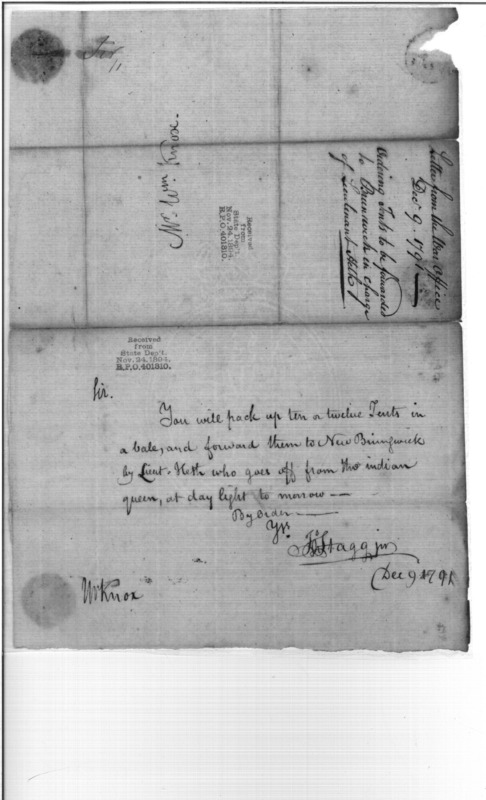 Sir
Mr. Wm Knox.
Received
from
State Dep't.
Nov. 24, 1894.
R.P.O. 401310.
Letter from the War Office
Dec 9. 1791
Ordering Tents to be forwarded
to Brunswick in charge
of Lieutenant Heth
Received
from
State Dep't.
Nov. 24, 1894.
R.P.O. 401310.
Sir.
You will pack up ten or twelve Tents in
a bale, and forward them to New Brunswick
by Lieut. Heth who goes off from the indian
queen, at day light to morrow —
By Order —
Yrs
Jno Stagg jnr
Dec 9 1791
Wm Knox